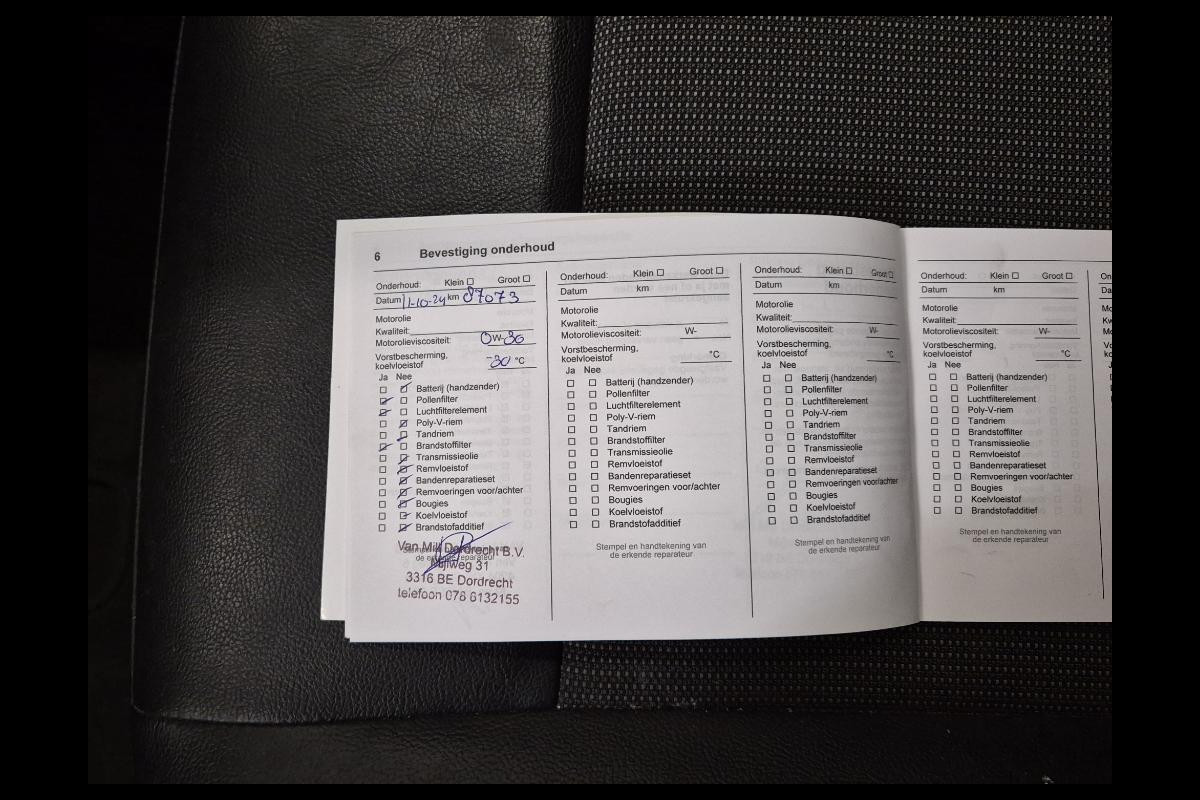 6 Bevestiging onderhoud
Onderhoud: Klein ☐ Groot ☐
Datum 11-10-24 km 87073
Motorolie
Kwaliteit:
Motorolieviscositeit: 0W-30
Vorstbescherming,
koelvloeistof -30 °C
Ja Nee
Batterij (handzender)
Pollenfilter
Luchtfilterelement
Poly-V-riem
Tandriem
Brandstoffilter
Transmissieolie
Remvloeistof
Bandenreparatieset
Remvoeringen voor/achter
Bougies
Koelvloeistof
Brandstofadditief
Van Mill Dordrecht B.V.
de erkende reparateur
Nijlweg 31
3316 BE Dordrecht
telefoon 078 6132155
Onderhoud: Klein ☐ Groot ☐
Datum km
Motorolie
Kwaliteit:
Motorolieviscositeit: W-
Vorstbescherming,
koelvloeistof °C
Ja Nee
Batterij (handzender)
Pollenfilter
Luchtfilterelement
Poly-V-riem
Tandriem
Brandstoffilter
Transmissieolie
Remvloeistof
Bandenreparatieset
Remvoeringen voor/achter
Bougies
Koelvloeistof
Brandstofadditief
Stempel en handtekening van
de erkende reparateur
Onderhoud: Klein ☐ Groot ☐
Datum km
Motorolie
Kwaliteit:
Motorolieviscositeit: W-
Vorstbescherming,
koelvloeistof °C
Ja Nee
Batterij (handzender)
Pollenfilter
Luchtfilterelement
Poly-V-riem
Tandriem
Brandstoffilter
Transmissieolie
Remvloeistof
Bandenreparatieset
Remvoeringen voor/achter
Bougies
Koelvloeistof
Brandstofadditief
Stempel en handtekening van
de erkende reparateur
Onderhoud: Klein ☐ Groot ☐
Datum km
Motorolie
Kwaliteit:
Motorolieviscositeit: W-
Vorstbescherming,
koelvloeistof °C
Ja Nee
Batterij (handzender)
Pollenfilter
Luchtfilterelement
Poly-V-riem
Tandriem
Brandstoffilter
Transmissieolie
Remvloeistof
Bandenreparatieset
Remvoeringen voor/achter
Bougies
Koelvloeistof
Brandstofadditief
Stempel en handtekening van
de erkende reparateur